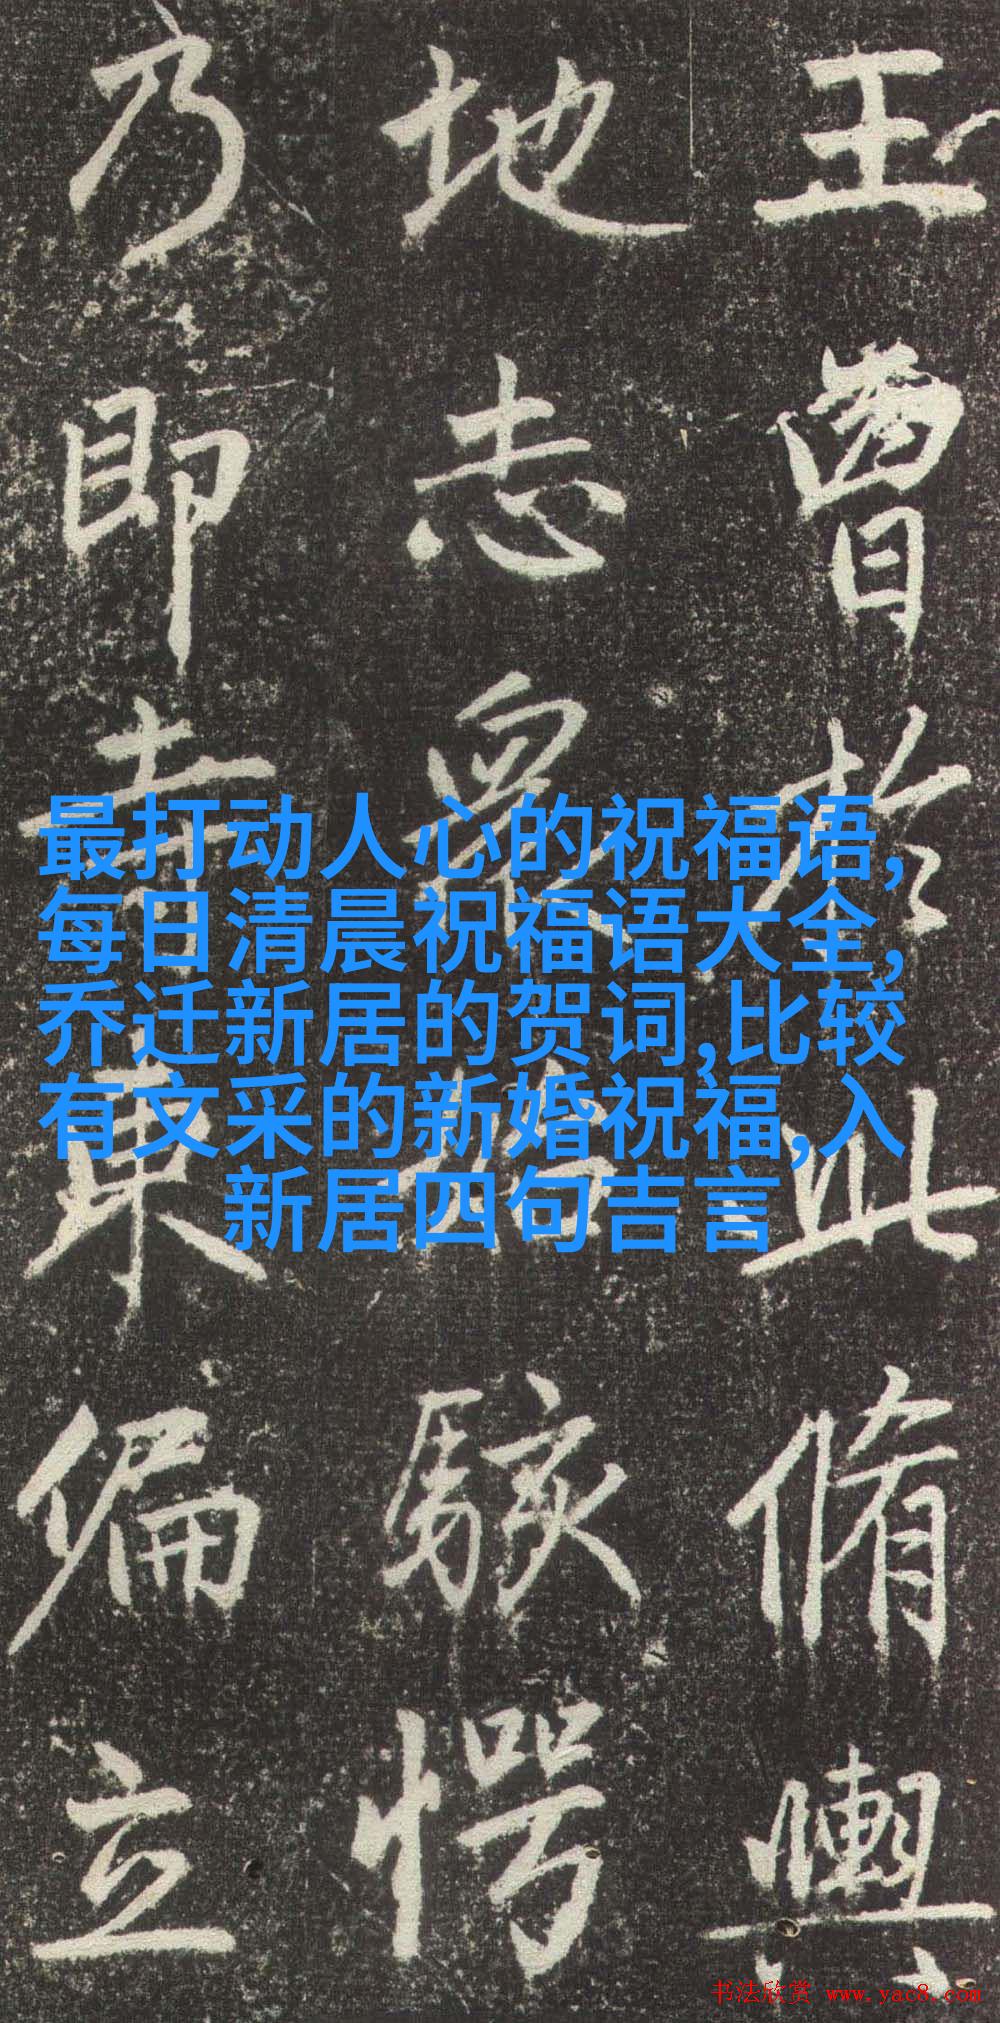 王曾於此脩輿
地志衆始駭愕
乃即寺東偏立
最打动人心的祝福语,
每日清晨祝福语大全,
乔迁新居的贺词,比较
有文采的新婚祝福,入
新居四句吉言
书法欣赏 www.yac8.com